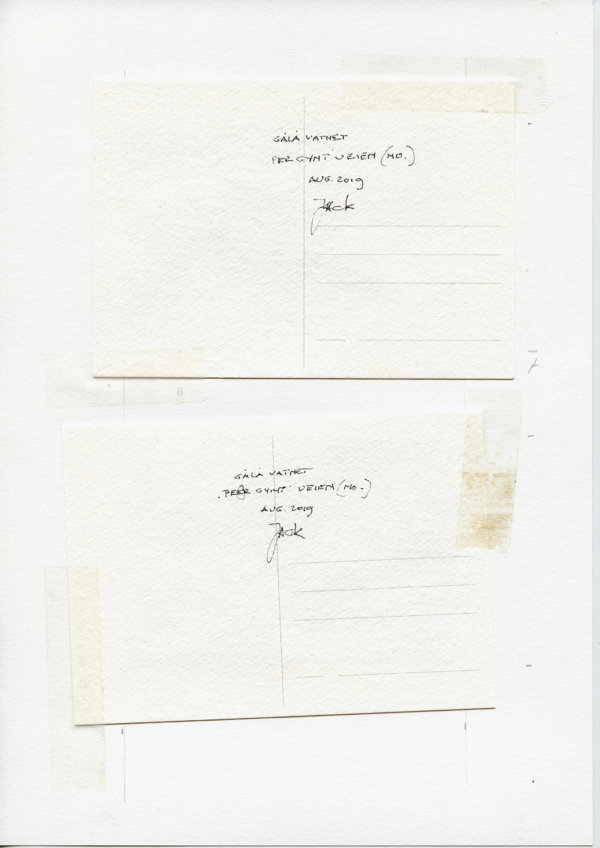 GÅLÅ VATNET
'PEER GYNT' VEIEN (NO.)
AUG. 2019
Jack
GÅLÅ VATNET
'PEER GYNT' VEIEN (NO.)
AUG. 2019
Jack